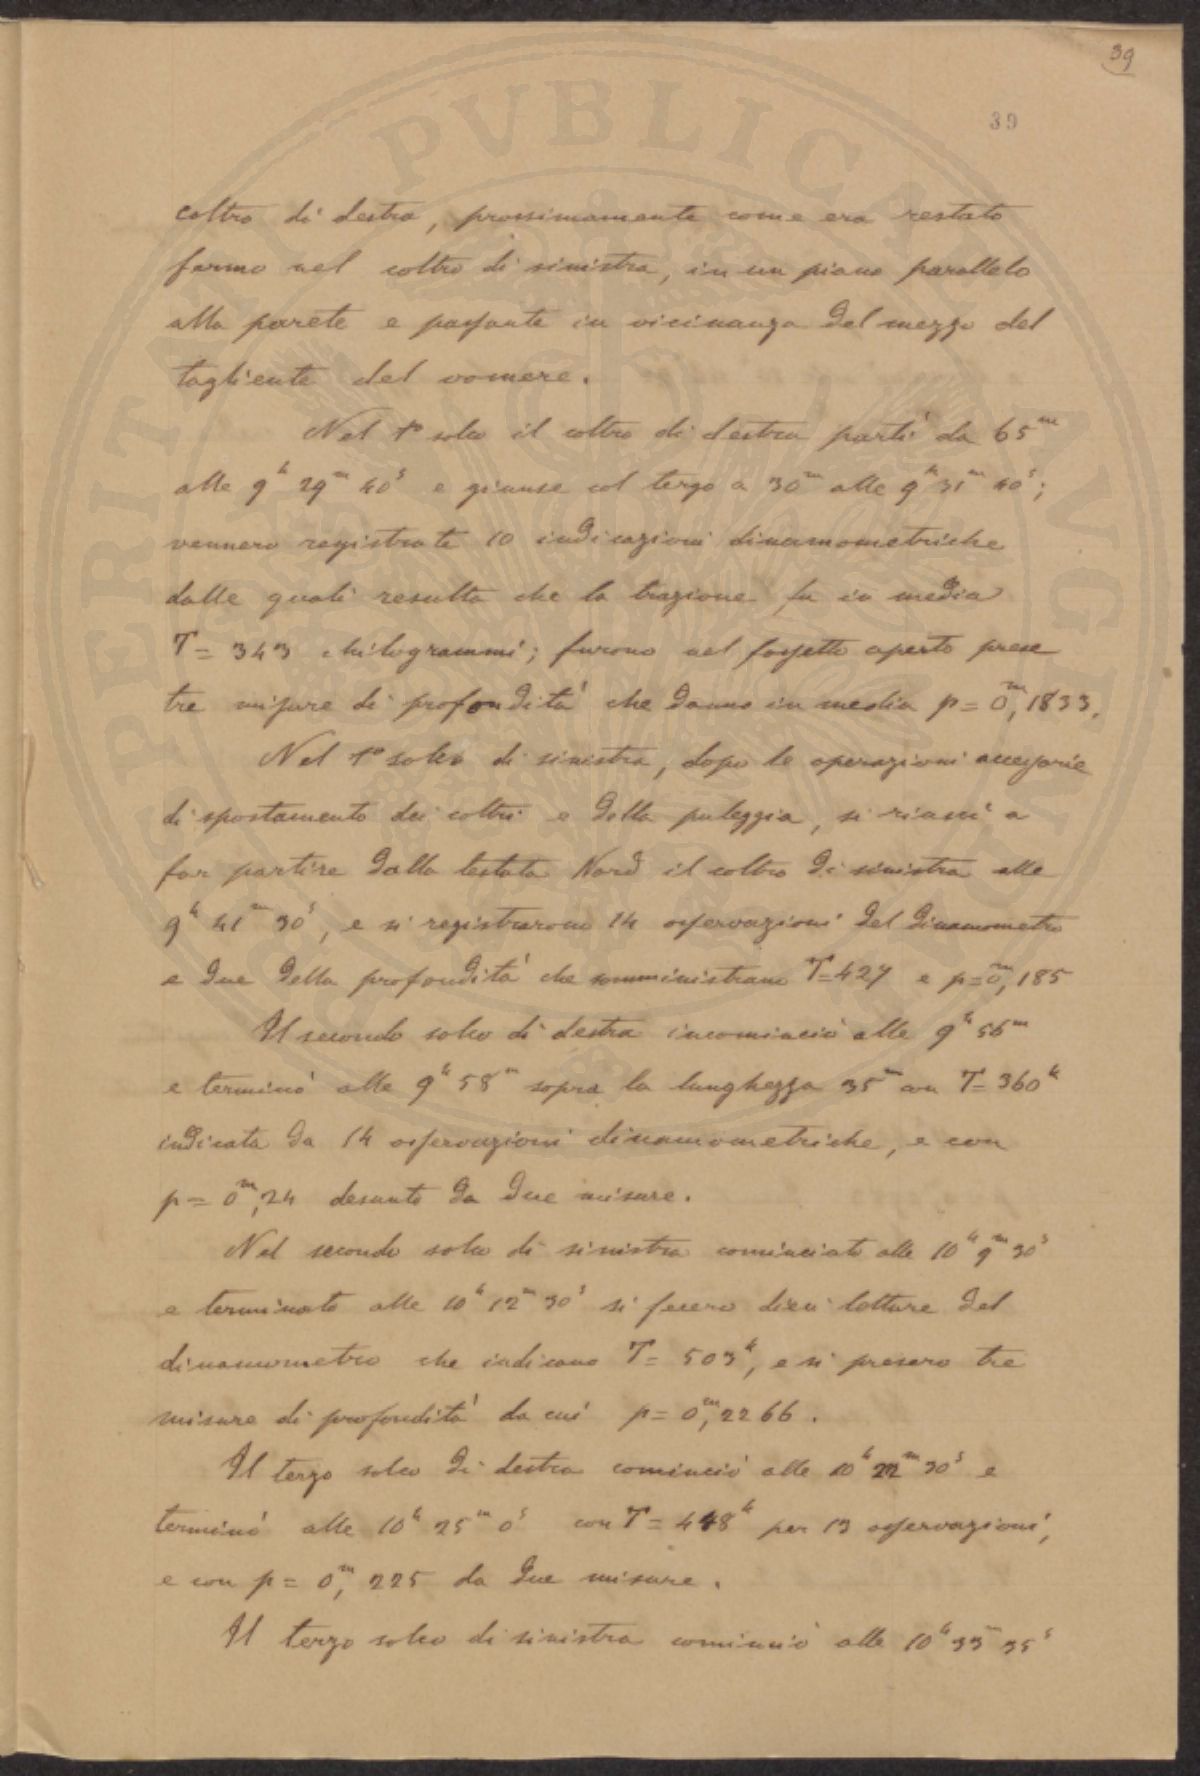 39
39
coltro di destra, prossimamente come era restato
fermo nel coltro di sinistra, in un piano parallelo
alla parete e passante in vicinanza del mezzo del
tagliente del vomere.
Nel 1º solco il coltro di destra partì da 65ᵐ
alle 9ʰ 29ᵐ 40ˢ e giunse col tergo a 30ᵐ alle 9ʰ 31ᵐ 40ˢ;
vennero registrate 10 indicazioni dinamometriche
dalle quali resulta che la trazione fu in media
T = 343 chilogrammi; furono nel fossetto aperto prese
tre misure di profondità che danno in media p = 0ᵐ,1833.
Nel 1º solco di sinistra, dopo le operazioni accessorie
di spostamento dei coltri e della puleggia, si riuscì a
far partire dalla testata Nord il coltro di sinistra alle
9ʰ 41ᵐ 30ˢ, e si registrarono 14 osservazioni del dinamometro
e due della profondità che somministrano T=427 e p=0ᵐ,185
Il secondo solco di destra incominciò alle 9ʰ 56ᵐ
e terminò alle 9ʰ 58ᵐ sopra la lunghezza 35ᵐ con T=360ᵏ
indicata da 14 osservazioni dinamometriche, e con
p = 0ᵐ,24 desunto da due misure.
Nel secondo solco di sinistra cominciato alle 10ʰ 9ᵐ 30ˢ
e terminato alle 10ʰ 12ᵐ 30ˢ si fecero dieci letture del
dinamometro che indicano T = 503ᵏ, e si presero tre
misure di profondità da cui p = 0ᵐ,2266.
Il terzo solco di destra cominciò alle 10ʰ 22ᵐ 30ˢ e
terminò alle 10ʰ 25ᵐ 0ˢ con T = 448ᵏ per 13 osservazioni,
e con p = 0ᵐ, 225 da due misure.
Il terzo solco di sinistra cominciò alle 10ʰ 33ᵐ 35ˢ